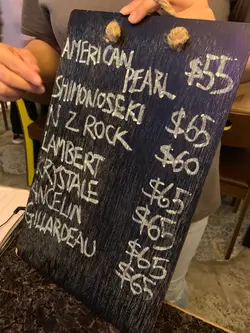 AMERICAN
PEARL $55
SHIMONOSEKI $65
N Z ROCK $60
LAMBERT $65
CRYSTALE $65
ANCELIN $65
GILLARDEAU $65